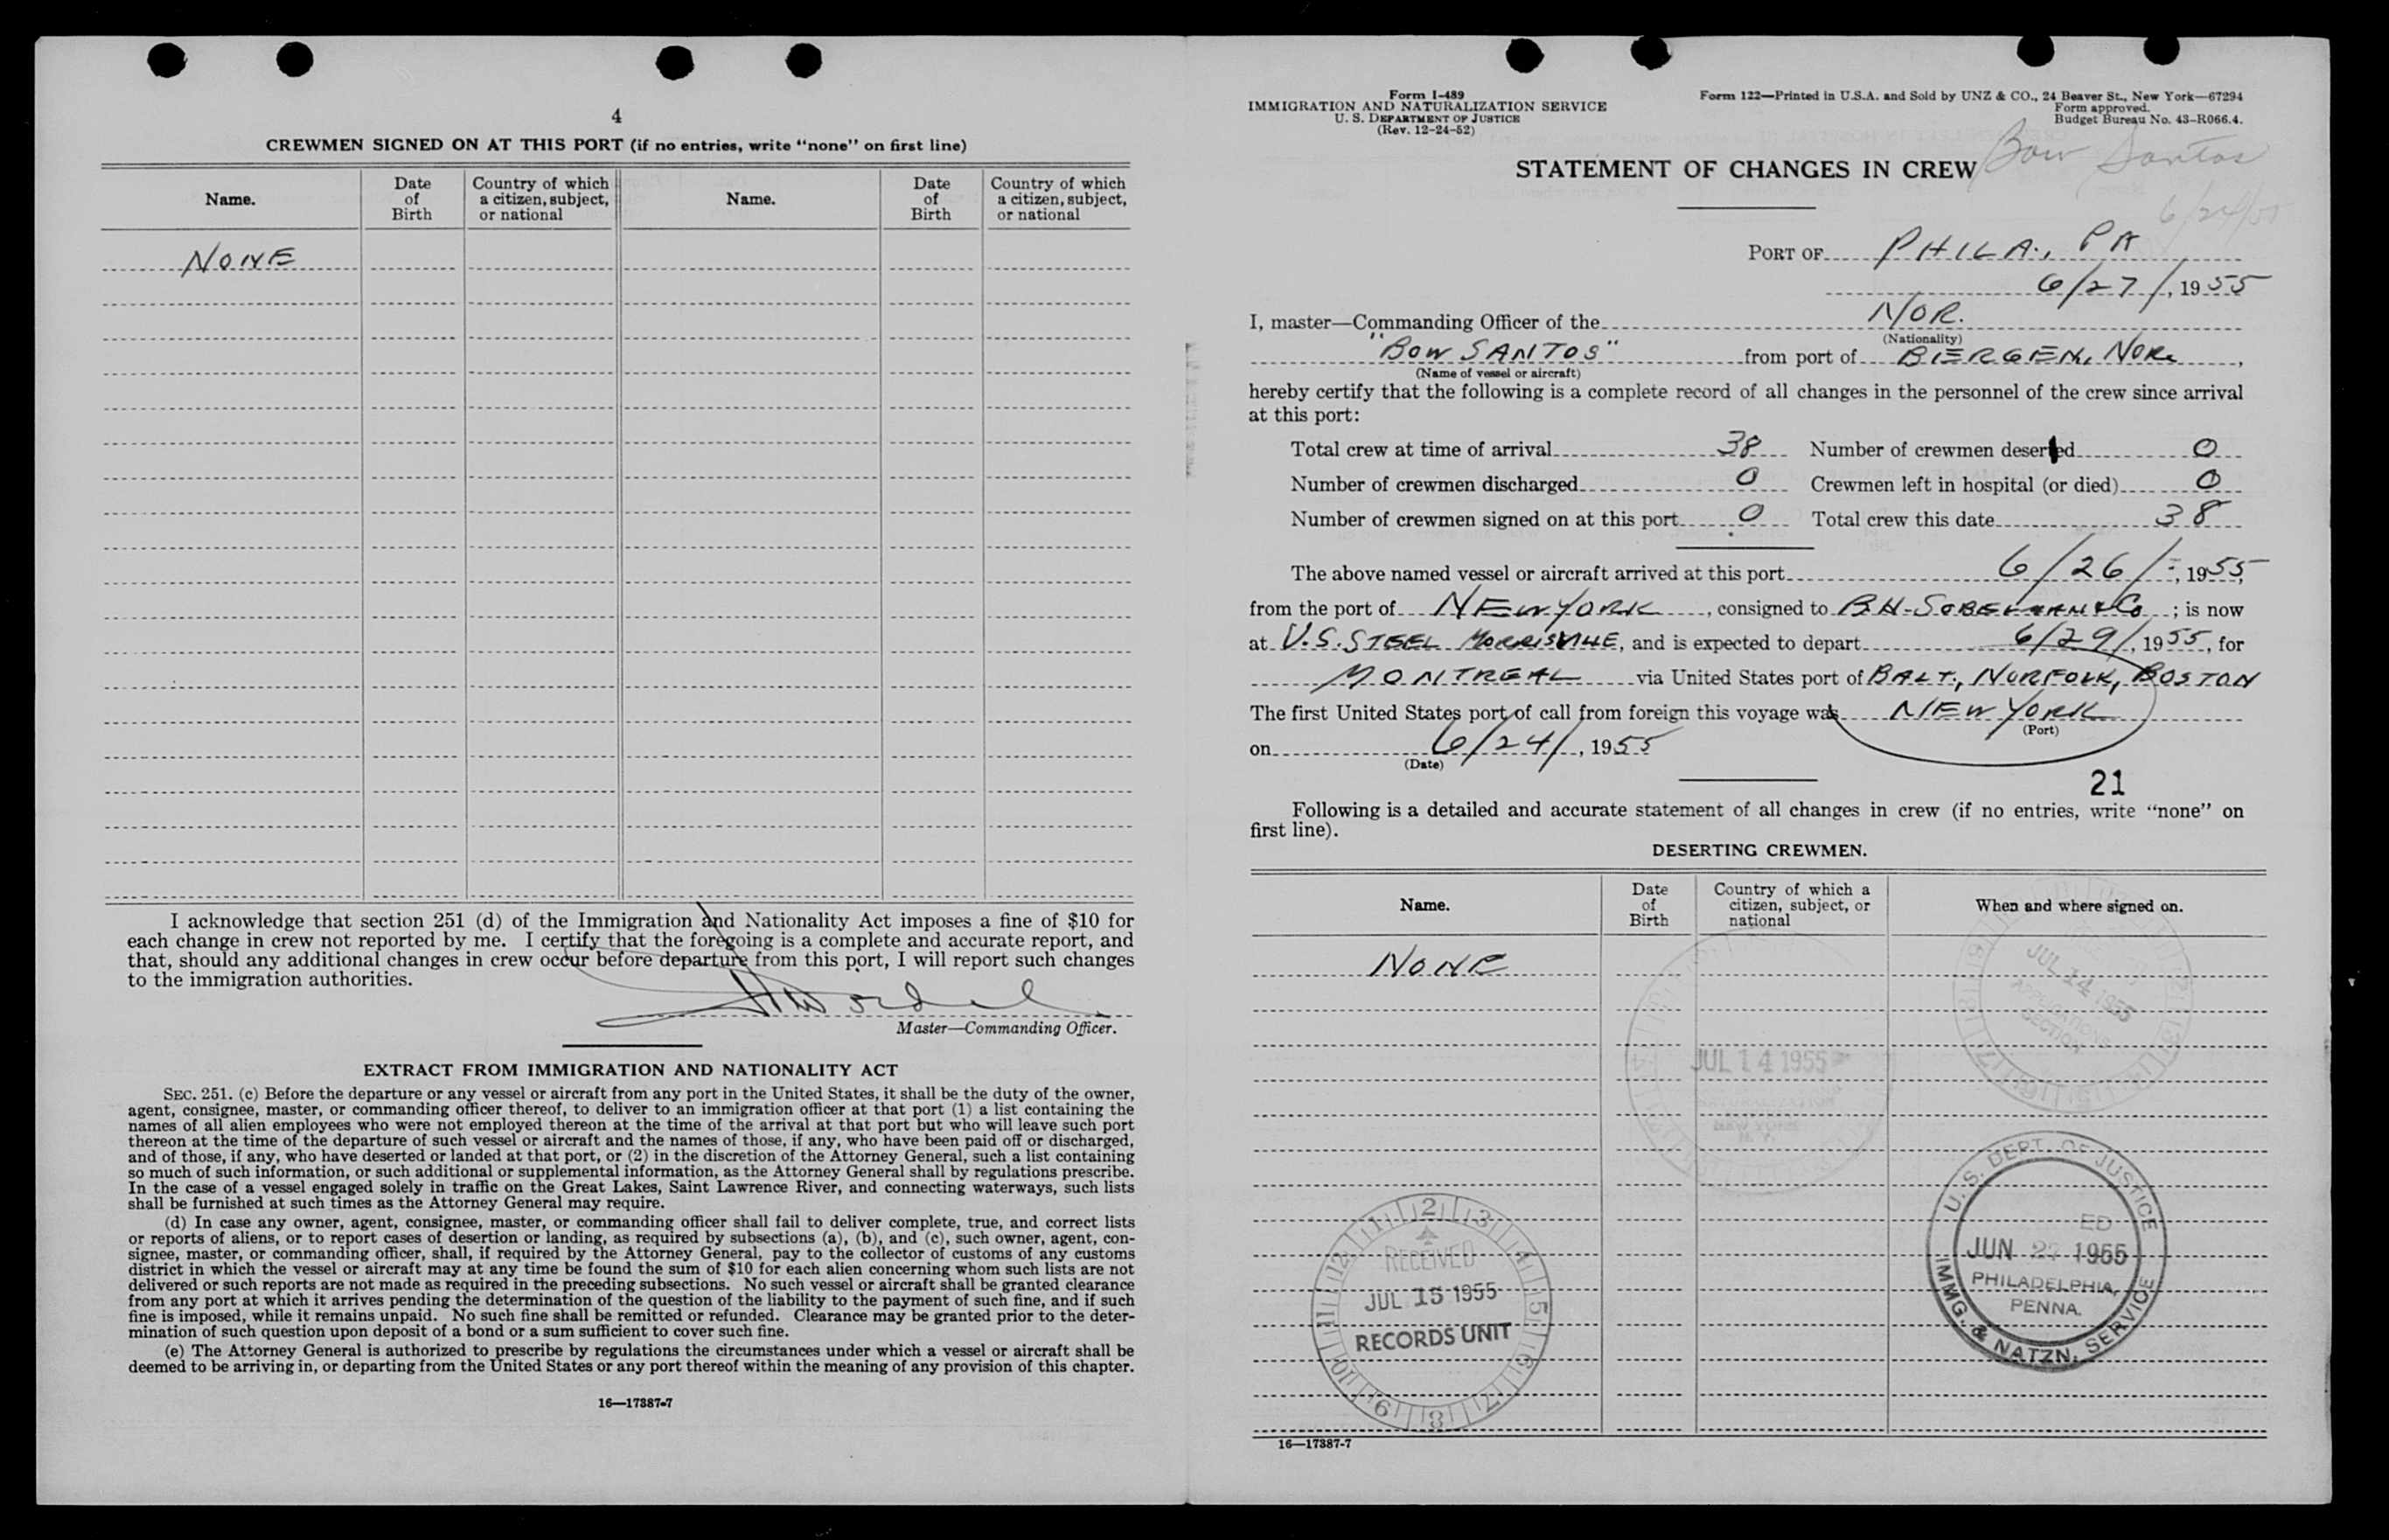 4
CREWMEN SIGNED ON AT THIS PORT (if no entries, write "none" on first line)
Name. Date of Birth Country of which a citizen, subject, or national Name. Date of Birth Country of which a citizen, subject, or national
NONE
I acknowledge that section 251 (d) of the Immigration and Nationality Act imposes a fine of $10 for
each change in crew not reported by me. I certify that the foregoing is a complete and accurate report, and
that, should any additional changes in crew occur before departure from this port, I will report such changes
to the immigration authorities.
Master—Commanding Officer.
EXTRACT FROM IMMIGRATION AND NATIONALITY ACT
SEC. 251. (c) Before the departure or any vessel or aircraft from any port in the United States, it shall be the duty of the owner,
agent, consignee, master, or commanding officer thereof, to deliver to an immigration officer at that port (1) a list containing the
names of all alien employees who were not employed thereon at the time of the arrival at that port but who will leave such port
thereon at the time of the departure of such vessel or aircraft and the names of those, if any, who have been paid off or discharged,
and of those, if any, who have deserted or landed at that port, or (2) in the discretion of the Attorney General, such a list containing
so much of such information, or such additional or supplemental information, as the Attorney General shall by regulations prescribe.
In the case of a vessel engaged solely in traffic on the Great Lakes, Saint Lawrence River, and connecting waterways, such lists
shall be furnished at such times as the Attorney General may require.
(d) In case any owner, agent, consignee, master, or commanding officer shall fail to deliver complete, true, and correct lists
or reports of aliens, or to report cases of desertion or landing, as required by subsections (a), (b), and (c), such owner, agent, con-
signee, master, or commanding officer, shall, if required by the Attorney General, pay to the collector of customs of any customs
district in which the vessel or aircraft may at any time be found the sum of $10 for each alien concerning whom such lists are not
delivered or such reports are not made as required in the preceding subsections. No such vessel or aircraft shall be granted clearance
from any port at which it arrives pending the determination of the question of the liability to the payment of such fine, and if such
fine is imposed, while it remains unpaid. No such fine shall be remitted or refunded. Clearance may be granted prior to the deter-
mination of such question upon deposit of a bond or a sum sufficient to cover such fine.
(e) The Attorney General is authorized to prescribe by regulations the circumstances under which a vessel or aircraft shall be
deemed to be arriving in, or departing from the United States or any port thereof within the meaning of any provision of this chapter.
16—17387-7
Form I-489
IMMIGRATION AND NATURALIZATION SERVICE
U. S. DEPARTMENT OF JUSTICE
(Rev. 12-24-52)
Form 122—Printed in U.S.A. and Sold by UNZ & CO., 24 Beaver St., New York—67294
Form approved.
Budget Bureau No. 43-R066.4.
Bow Santos
STATEMENT OF CHANGES IN CREW
6/24/55
PORT OF PHILA., PA
6/27/, 1955
I, master—Commanding Officer of the NOR.
(Nationality)
"BOW SANTOS" from port of BERGEN, NOR.,
(Name of vessel or aircraft)
hereby certify that the following is a complete record of all changes in the personnel of the crew since arrival
at this port:
Total crew at time of arrival 38 Number of crewmen deserted 0
Number of crewmen discharged 0 Crewmen left in hospital (or died) 0
Number of crewmen signed on at this port 0 Total crew this date 38
The above named vessel or aircraft arrived at this port 6/26/, 1955,
from the port of NEW YORK, consigned to B.H. SOBELMAN & Co; is now
at U.S. STEEL MORRISVILLE, and is expected to depart 6/29/, 1955, for
MONTREAL via United States port of BALT., NORFOLK, BOSTON
The first United States port of call from foreign this voyage was NEW YORK
(Port)
on 6/24/, 1955
(Date)
21
Following is a detailed and accurate statement of all changes in crew (if no entries, write "none" on
first line).
DESERTING CREWMEN.
Name. Date of Birth Country of which a citizen, subject, or national When and where signed on.
NONE
JUL 14 1955
SECTION
JUL 14 1955
NEW YORK
N. Y.
U. S. DEPT. OF JUSTICE
ED
JUN 27 1955
PHILADELPHIA,
PENNA.
IMMG. & NATZN. SERVICE
RECEIVED
JUL 15 1955
RECORDS UNIT
1 2 3 4 5 6 7 8 9 10 11 12
16—17387-7